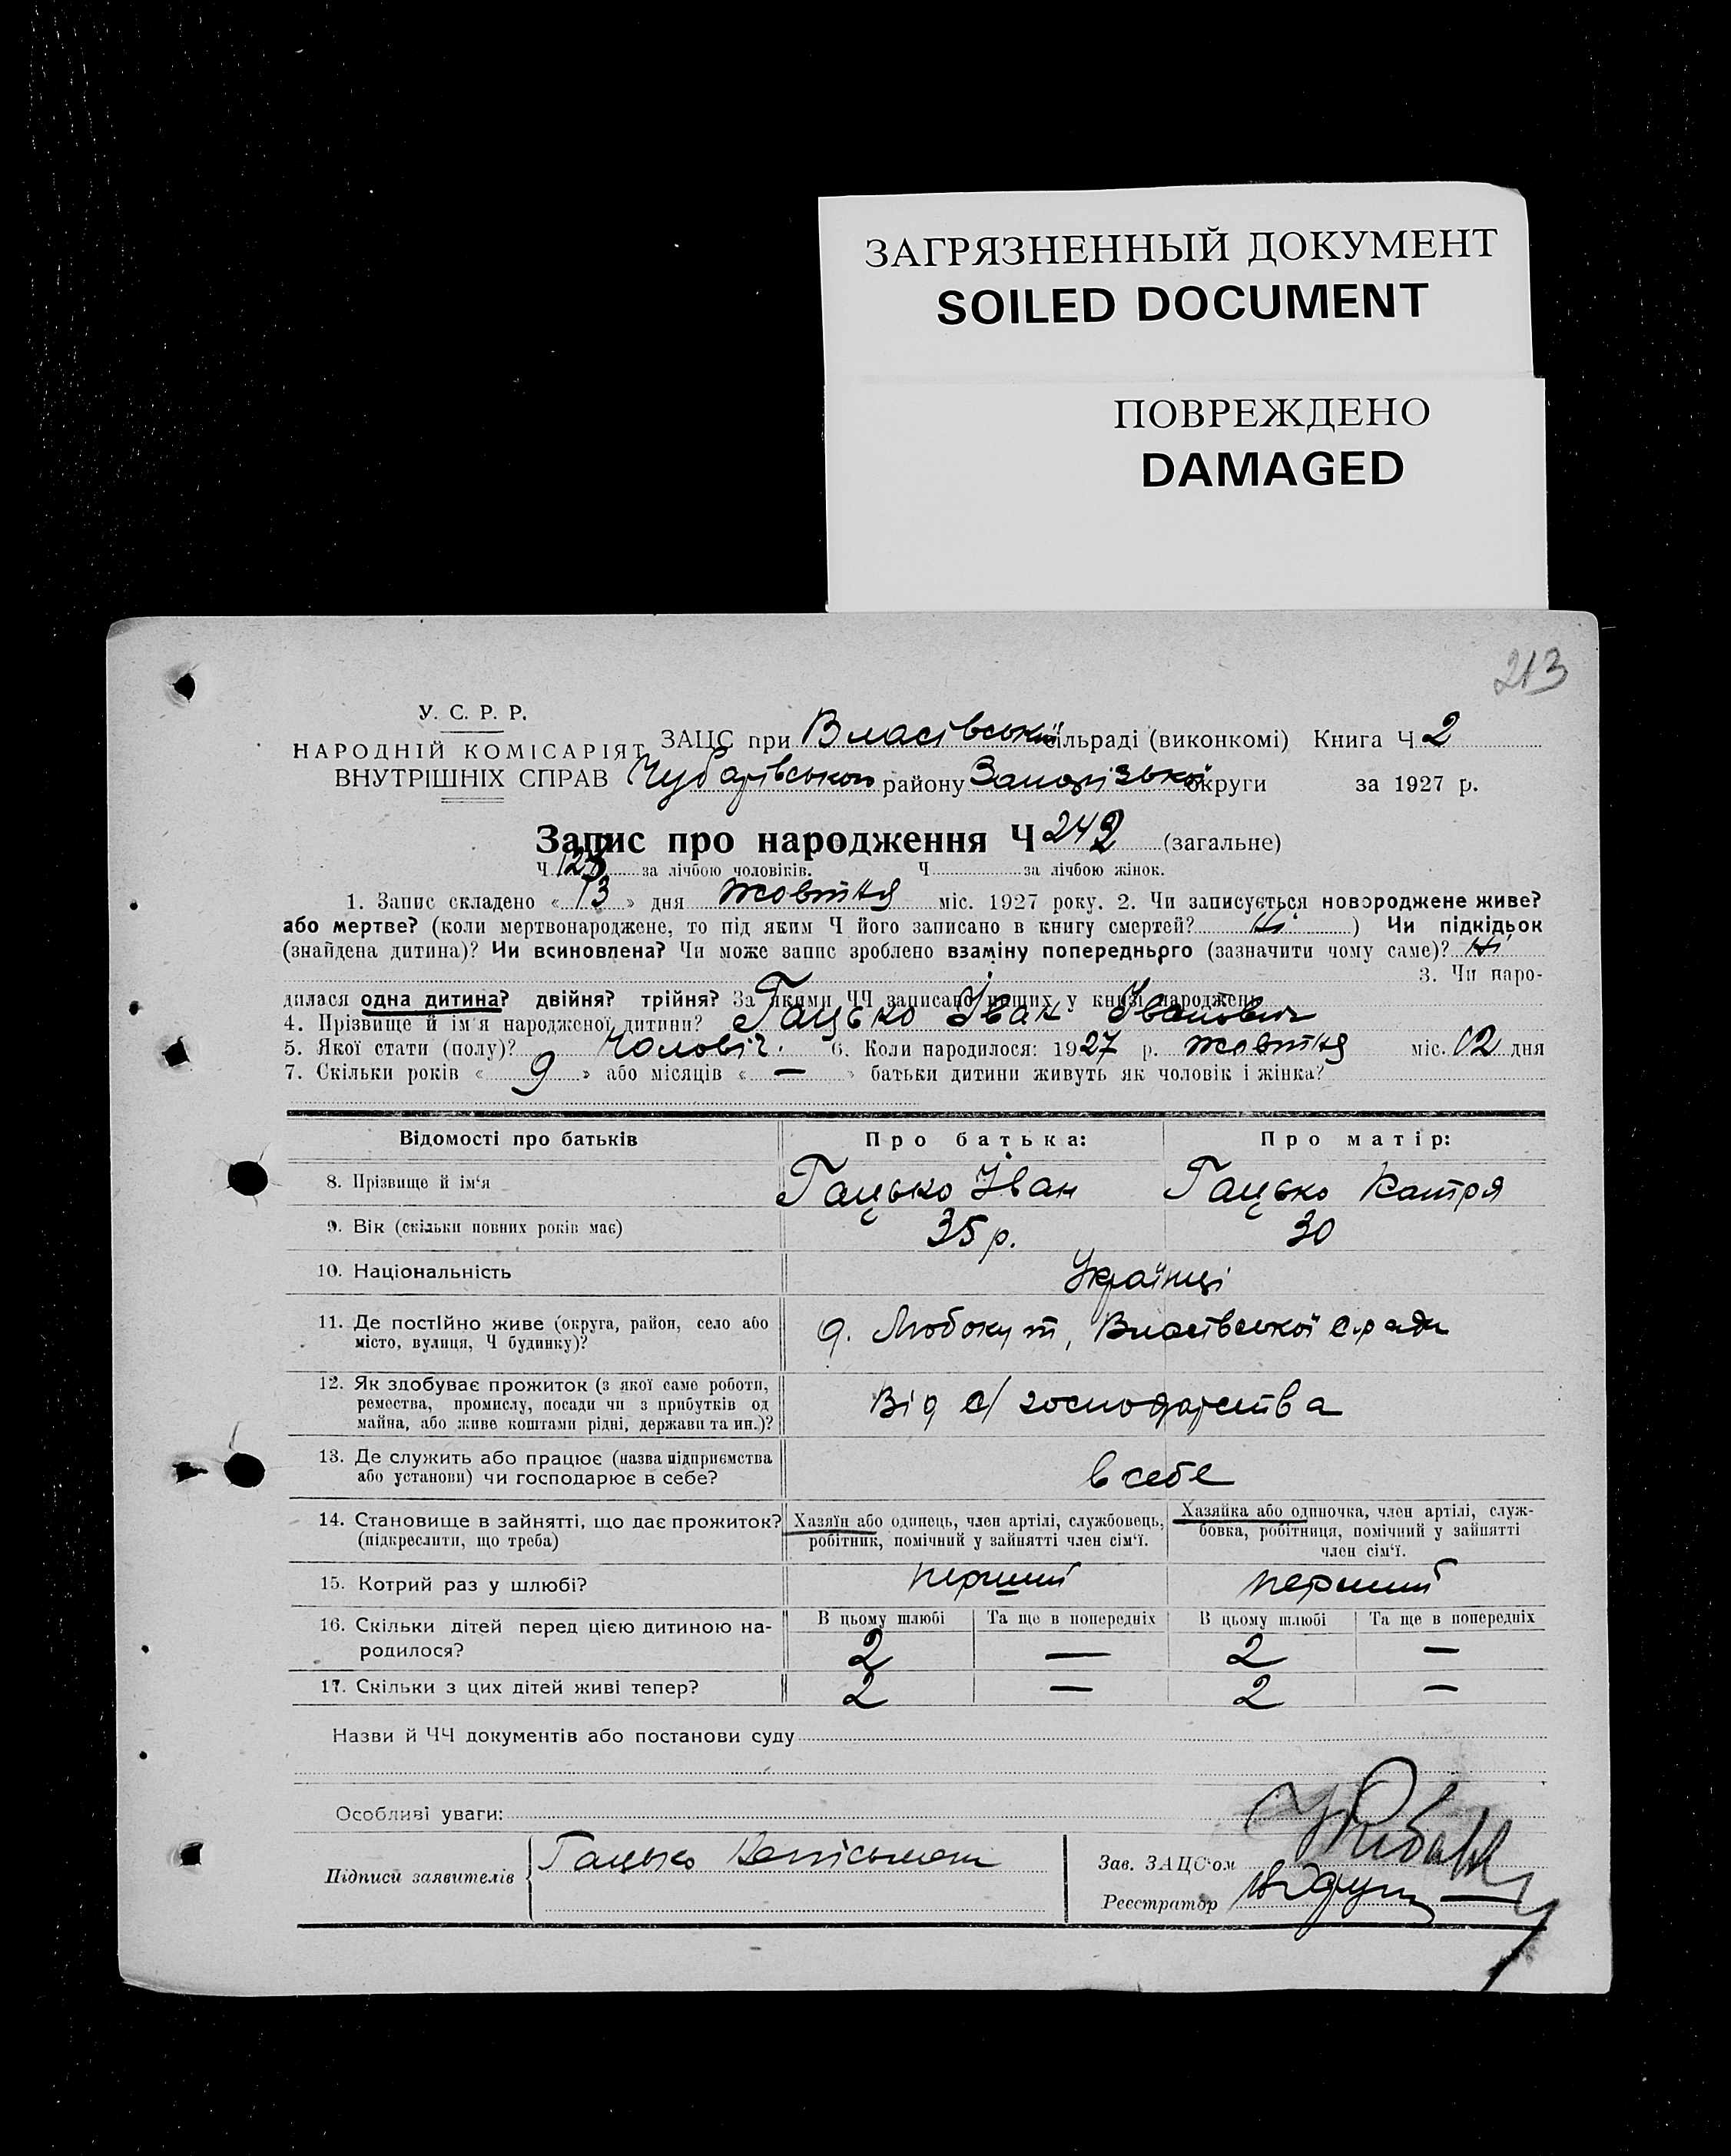 ЗАГРЯЗНЕННЫЙ ДОКУМЕНТ
SOILED DOCUMENT
ПОВРЕЖДЕНО
DAMAGED
213
У. С. Р. Р.
НАРОДНІЙ КОМІСАРІЯТ
ВНУТРІШНІХ СПРАВ
ЗАЦС при Власівській сільраді (виконкомі) Книга Ч 2
Чубарівського району Запорізької округи за 1927 р.
Запис про народження Ч 242 (загальне)
Ч 128 за лічбою чоловіків. Ч за лічбою жінок.
1. Запис складено « 13 » дня жовтня міс. 1927 року. 2. Чи записується новороджене живе?
або мертве? (коли мертвонароджене, то під яким Ч його записано в книгу смертей? Ні ) Чи підкідьок
(знайдена дитина)? Чи всиновлена? Чи може запис зроблено взаміну попереднього (зазначити чому саме)? Ні
3. Чи наро-
дилася одна дитина? двійня? трійня? За якими ЧЧ записано інших у книзі народжень
4. Прізвище й ім'я народженої дитини? Гацько Іван Іванович
5. Якої стати (полу)? Чоловіч. 6. Коли народилося: 1927 р. жовтня міс. 12 дня
7. Скільки років « 9 » або місяців « — » батьки дитини живуть як чоловік і жінка?
Відомості про батьків Про батька: Про матір:
8. Прізвище й ім'я Гацько Іван Гацько Катря
9. Вік (скільки повних років має) 35 р. 30
10. Національність Українці
11. Де постійно живе (округа, район, село або
місто, вулиця, Ч будинку)? с. Любокут, Власівської с.ради
12. Як здобуває прожиток (з якої саме роботи,
ремества, промислу, посади чи з прибутків од
майна, або живе коштами рідні, держави та ин.)? Від с/ господарства
13. Де служить або працює (назва підприємства
або установи) чи господарює в себе? в себе
14. Становище в зайнятті, що дає прожиток?
(підкреслити, що треба)
Хазяїн або одинець, член артілі, службовець,
робітник, помічний у зайнятті член сім'ї.
Хазяйка або одиночка, член артілі, служ-
бовка, робітниця, помічний у зайнятті
член сім'ї.
15. Котрий раз у шлюбі? перший перший
16. Скільки дітей перед цією дитиною на-
родилося?
В цьому шлюбі Та ще в попередніх В цьому шлюбі Та ще в попередніх
2 — 2 —
17. Скільки з цих дітей живі тепер? 2 — 2 —
Назви й ЧЧ документів або постанови суду
Особливі уваги:
Підписи заявителів Гацько
Зав. ЗАЦС'ом
Реєстратор